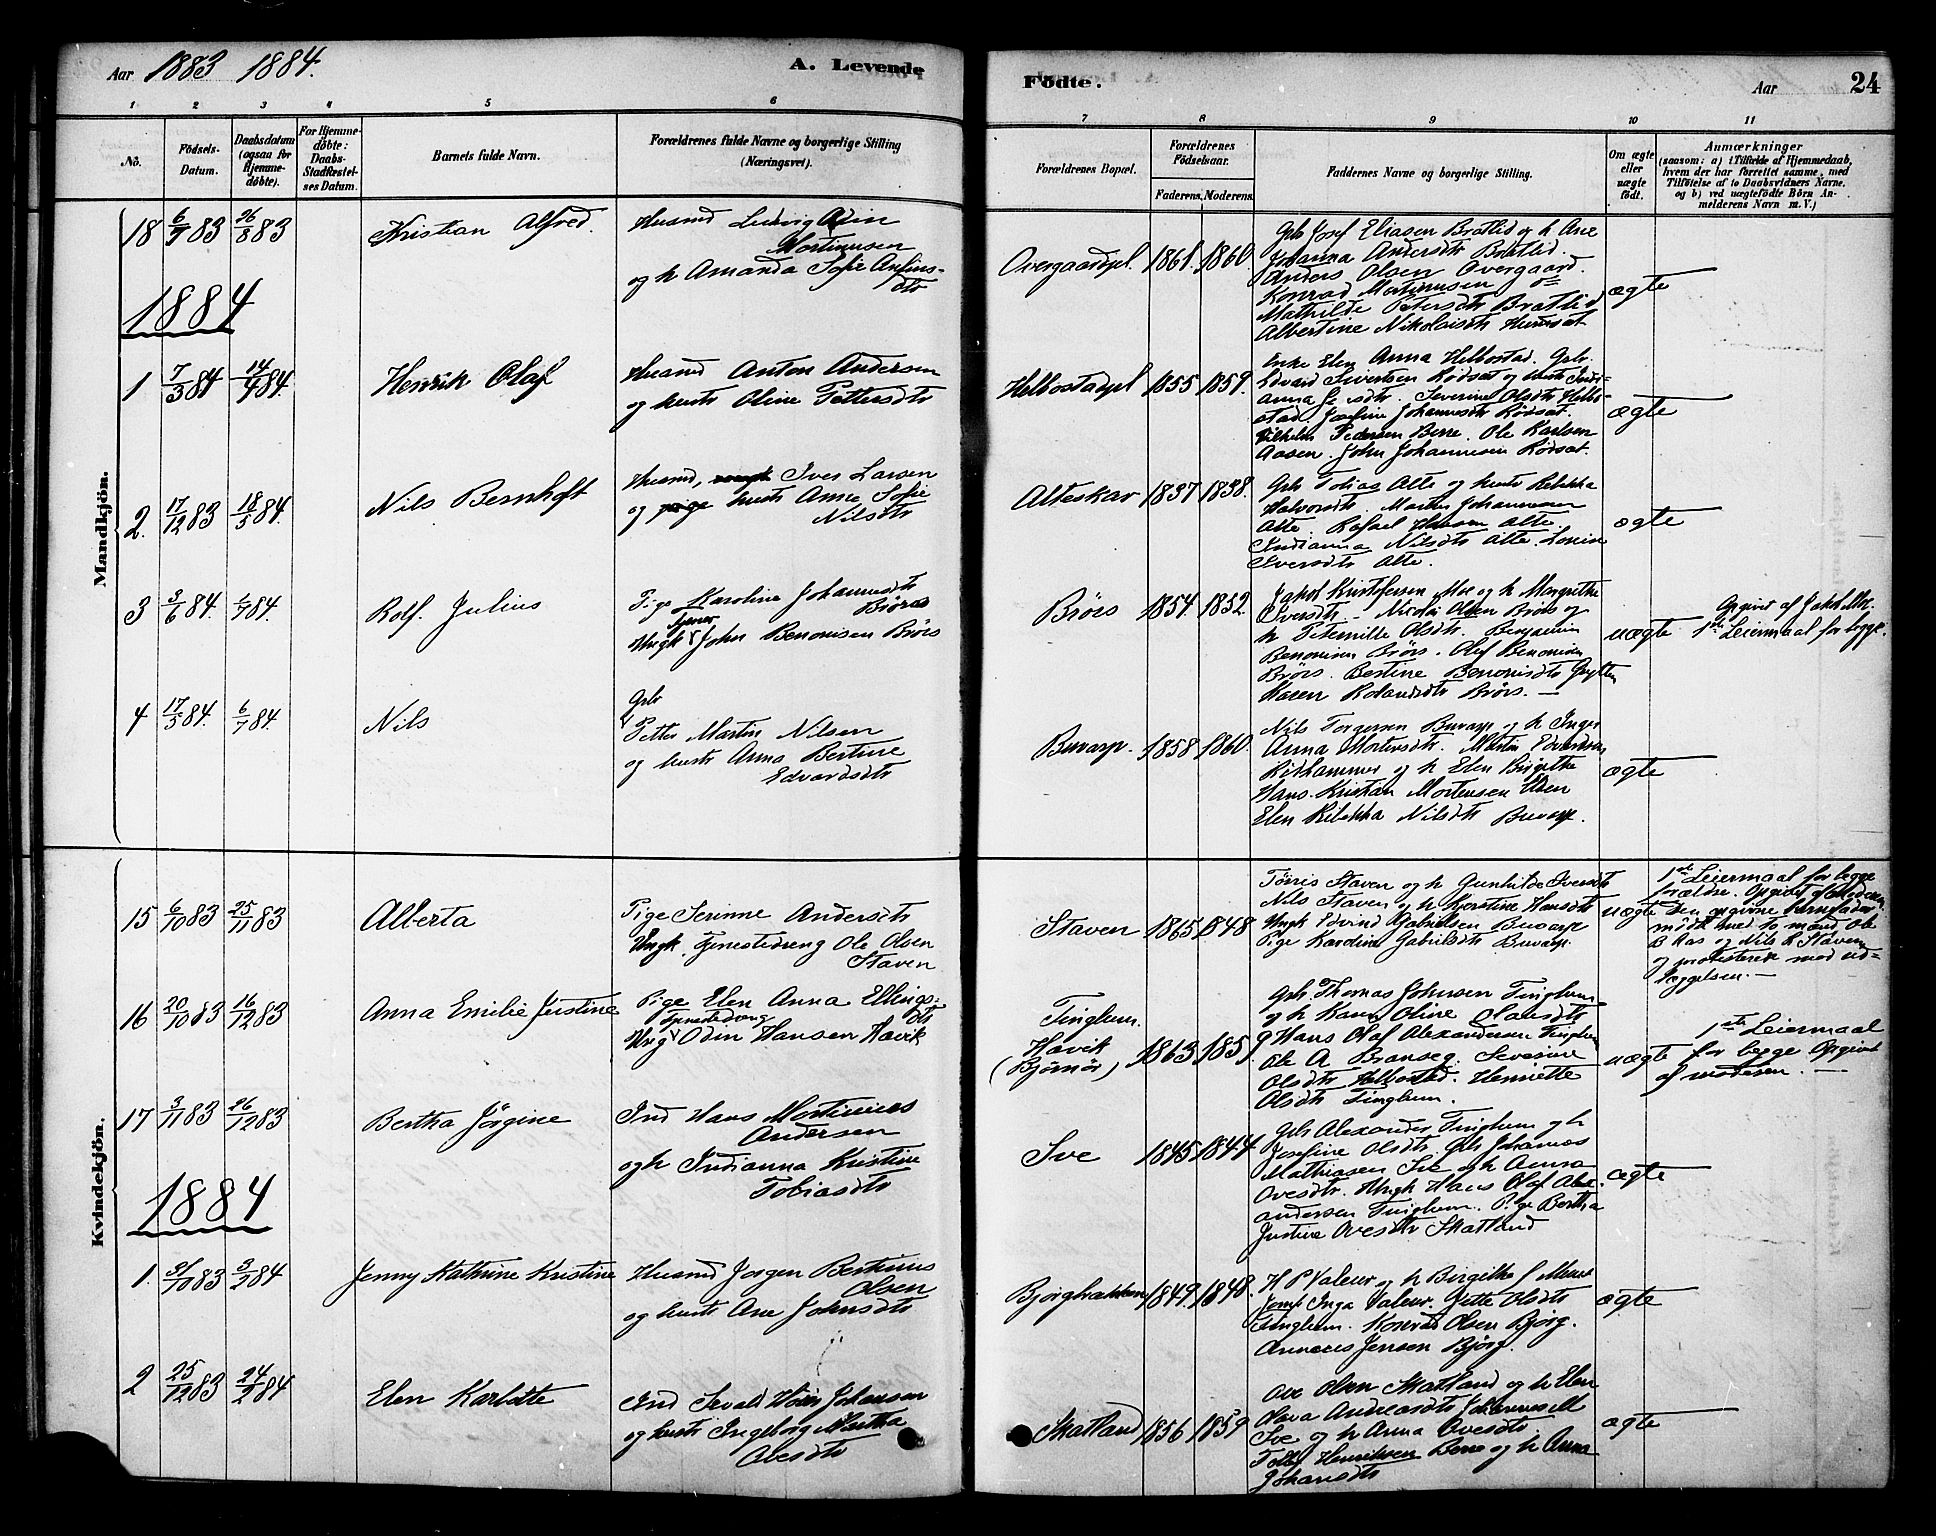 Aar 1883 1884.
A. Levende
Födte.
Aar
24
1 2 3 4 5 6 7 8 9 10 11
Nō.
Födsels-
Datum.
Daabsdatum
(ogsaa for
Hjemme-
döbte).
For Hjemme-
döbte:
Daabs-
Stadfæstel-
ses Datum.
Barnets fulde Navn.
Forældrenes fulde Navne og borgerlige Stilling
(Næringsvei).
Forældrenes Bopæl.
Forældrenes
Födselsaar.
Faderens. Moderens.
Faddernes Navne og borgerlige Stilling.
Om ægte
eller
uægte
födt.
Anmærkninger
(saasom: a) i Tilfælde af Hjemmedaab,
hvem der har forrettet samme, med
Tilföielse af to Daabsvidners Navne,
og b) ved uægtefödte Börn An-
melderens Navn m.V.)
Mandkjön.
18 6/7 83 26/8 83
Kristian Alfred.
Husmd Ludvig Odin
Mortinusen
og h Amanda Sofie Anfins-
dtr
Overgaardspl. 1861. 1860.
Gbr Josef Eliasen Bratlid og h Ane
Johanna Andersdtr Bratlid.
Anders Olsen Overgaard.
Konrad Mortinusen
Mathilde Petersdtr Bratlid
Albertine Nikolaisdtr
ægte
1884
1 7/3 84 14/4 84.
Henrik Olaf
Husmd Anton Andersen
og hustr Oline Pettersdtr
Helbostadpl 1855 1859.
Enke Elen Anna Helbostad. Gbr.
Edvard Sivertsen Rödsat og hustr Indi-
anna dtr. Severine Olsdtr Helbo-
stad. Josefine Johannesdtr Rödsat.
Vilhelm Pedersen Berre. Ole Karlsen
Aasen. John Johannesen Rödsat.
ægte
2. 17/12 83 18/5 84.
Nils Bernhoft
Husmd, Iver Larsen
og hustr Anne Sofie
Nilsdtr
Alteskar 1837 1838.
Gbr Tobias Alte og hustr Rebekka
Halvorsdtr. Martin Johannesen
Alte. Rafael Hansen Alte.
Indianna Nilsdtr Alte. Lovise
Iversdtr Alte.
ægte
3 3/6 84. 6/7 84.
Rolf. Julius
Pige Karoline Johannesdtr
Brörs
Tjener
Ungk John Benonisen Brörs
Brörs 1854 1852.
Jakob Kristofersen Moe og h Margrethe
Iversdtr. Nicolai Olsen Brörs og
h Peternille Olsdtr. Benjamin
Benonisen Brörs. Olaf Benonisen
Brörs. Bestine Benonisdtr
Karen Rolandsdtr Brörs.
uægte
Opgivet af Jakob Moe.
1ste Leiermaal for begge.
4 17/5 84. 6/7 84.
Nils
Gbr
Petter Martin Nilsen
og hustr Anna Bertine
Edvardsdtr
Buvarp. 1858 1860.
Nils Torgersen Buvarp og h Inger
Anna Mortensdtr. Martin Edvardsen
Rödhammer og h Elen Birgithe
Hans Kristian Mortensen
Elen Rebekka Nilsdtr Buvarp.
ægte
Kvindekjön.
15 6/10 83 25/11 83
Alberta
Pige Serinne Andersdtr
Ungk. Tjenestedreng Ole Olsen
Staven
Staven 1865 1848
Törris Staven og h Gunhilde Iversdtr
Nils Staven og h Kjerstine Hansdtr
Ungk Edvind Gabrielsen Buvarp
Pige Karoline Gabrielsdtr Buvarp.
uægte
1ste Leiermaal for begge
forældre. Opgivet af moderen.
Den opgivne barnefader
mödte med to mænd Ole
B Aas og Nils L Staven
og protesterede mod ud-
læggelsen.
16 20/10 83 16/12 83
Anna Emilie Justine
Pige Elen Anna Ellings-
dtr
Tjenestedreng
Ung Odin Hansen Havik
Tinglum.
Havik
(Björnör)
1863 1851
Gbr. Thomas Johnsen Tinglum
og h Karen Oline Olausdtr
Hans Olaf Alexandersen Tinglum
Ole A. Branseg. Severine
Olsdtr Helbostad. Henriette
Olsdtr Tinglum.
uægte
1ste Leiermaal
for begge Opgivet
af moderen.
17 3/11 83 26/12 83
Bertha Jörgine
Ind Hans Mortinius
Andersen
og h Indianna Kristine
Tobiasdtr
Sve 1845 1844
Gbr Alexander Tinglum og h
Josefine Olsdtr. Gbr Johannes
Mathiasen Sve og h Anna
Ovesdtr. Ungk Hans Olaf Alex-
andersen Tinglum. Pige Bertha
Justine Ovesdtr Skatland
ægte
1884
1. 31/10 83 3/2 84
Jenny Kathrine Kristine
Husmd Jörgen Bertinus
Olsen
og hustr Ane Johnsdtr
Björgbakken 1849. 1848.
H P Valeur og h Birgitha
Jomf Inga Valeur. Jette Olsdtr
Tinglum. Konrad Olsen Björg.
Anneus Jensen Björg.
ægte
2 25/12 83 24/2 84
Elen Karlotte
Ind Sevald Johansen
og hustr Ingeborg Martha
Ovesdtr
Skatland 1856 1859
Ove Olsen Skatland og h Elen
Olava Andreasdtr. Johannes M
Sve og h Anna Ovesdtr
Henriksen Berre og h Anna
Johansdtr
ægte